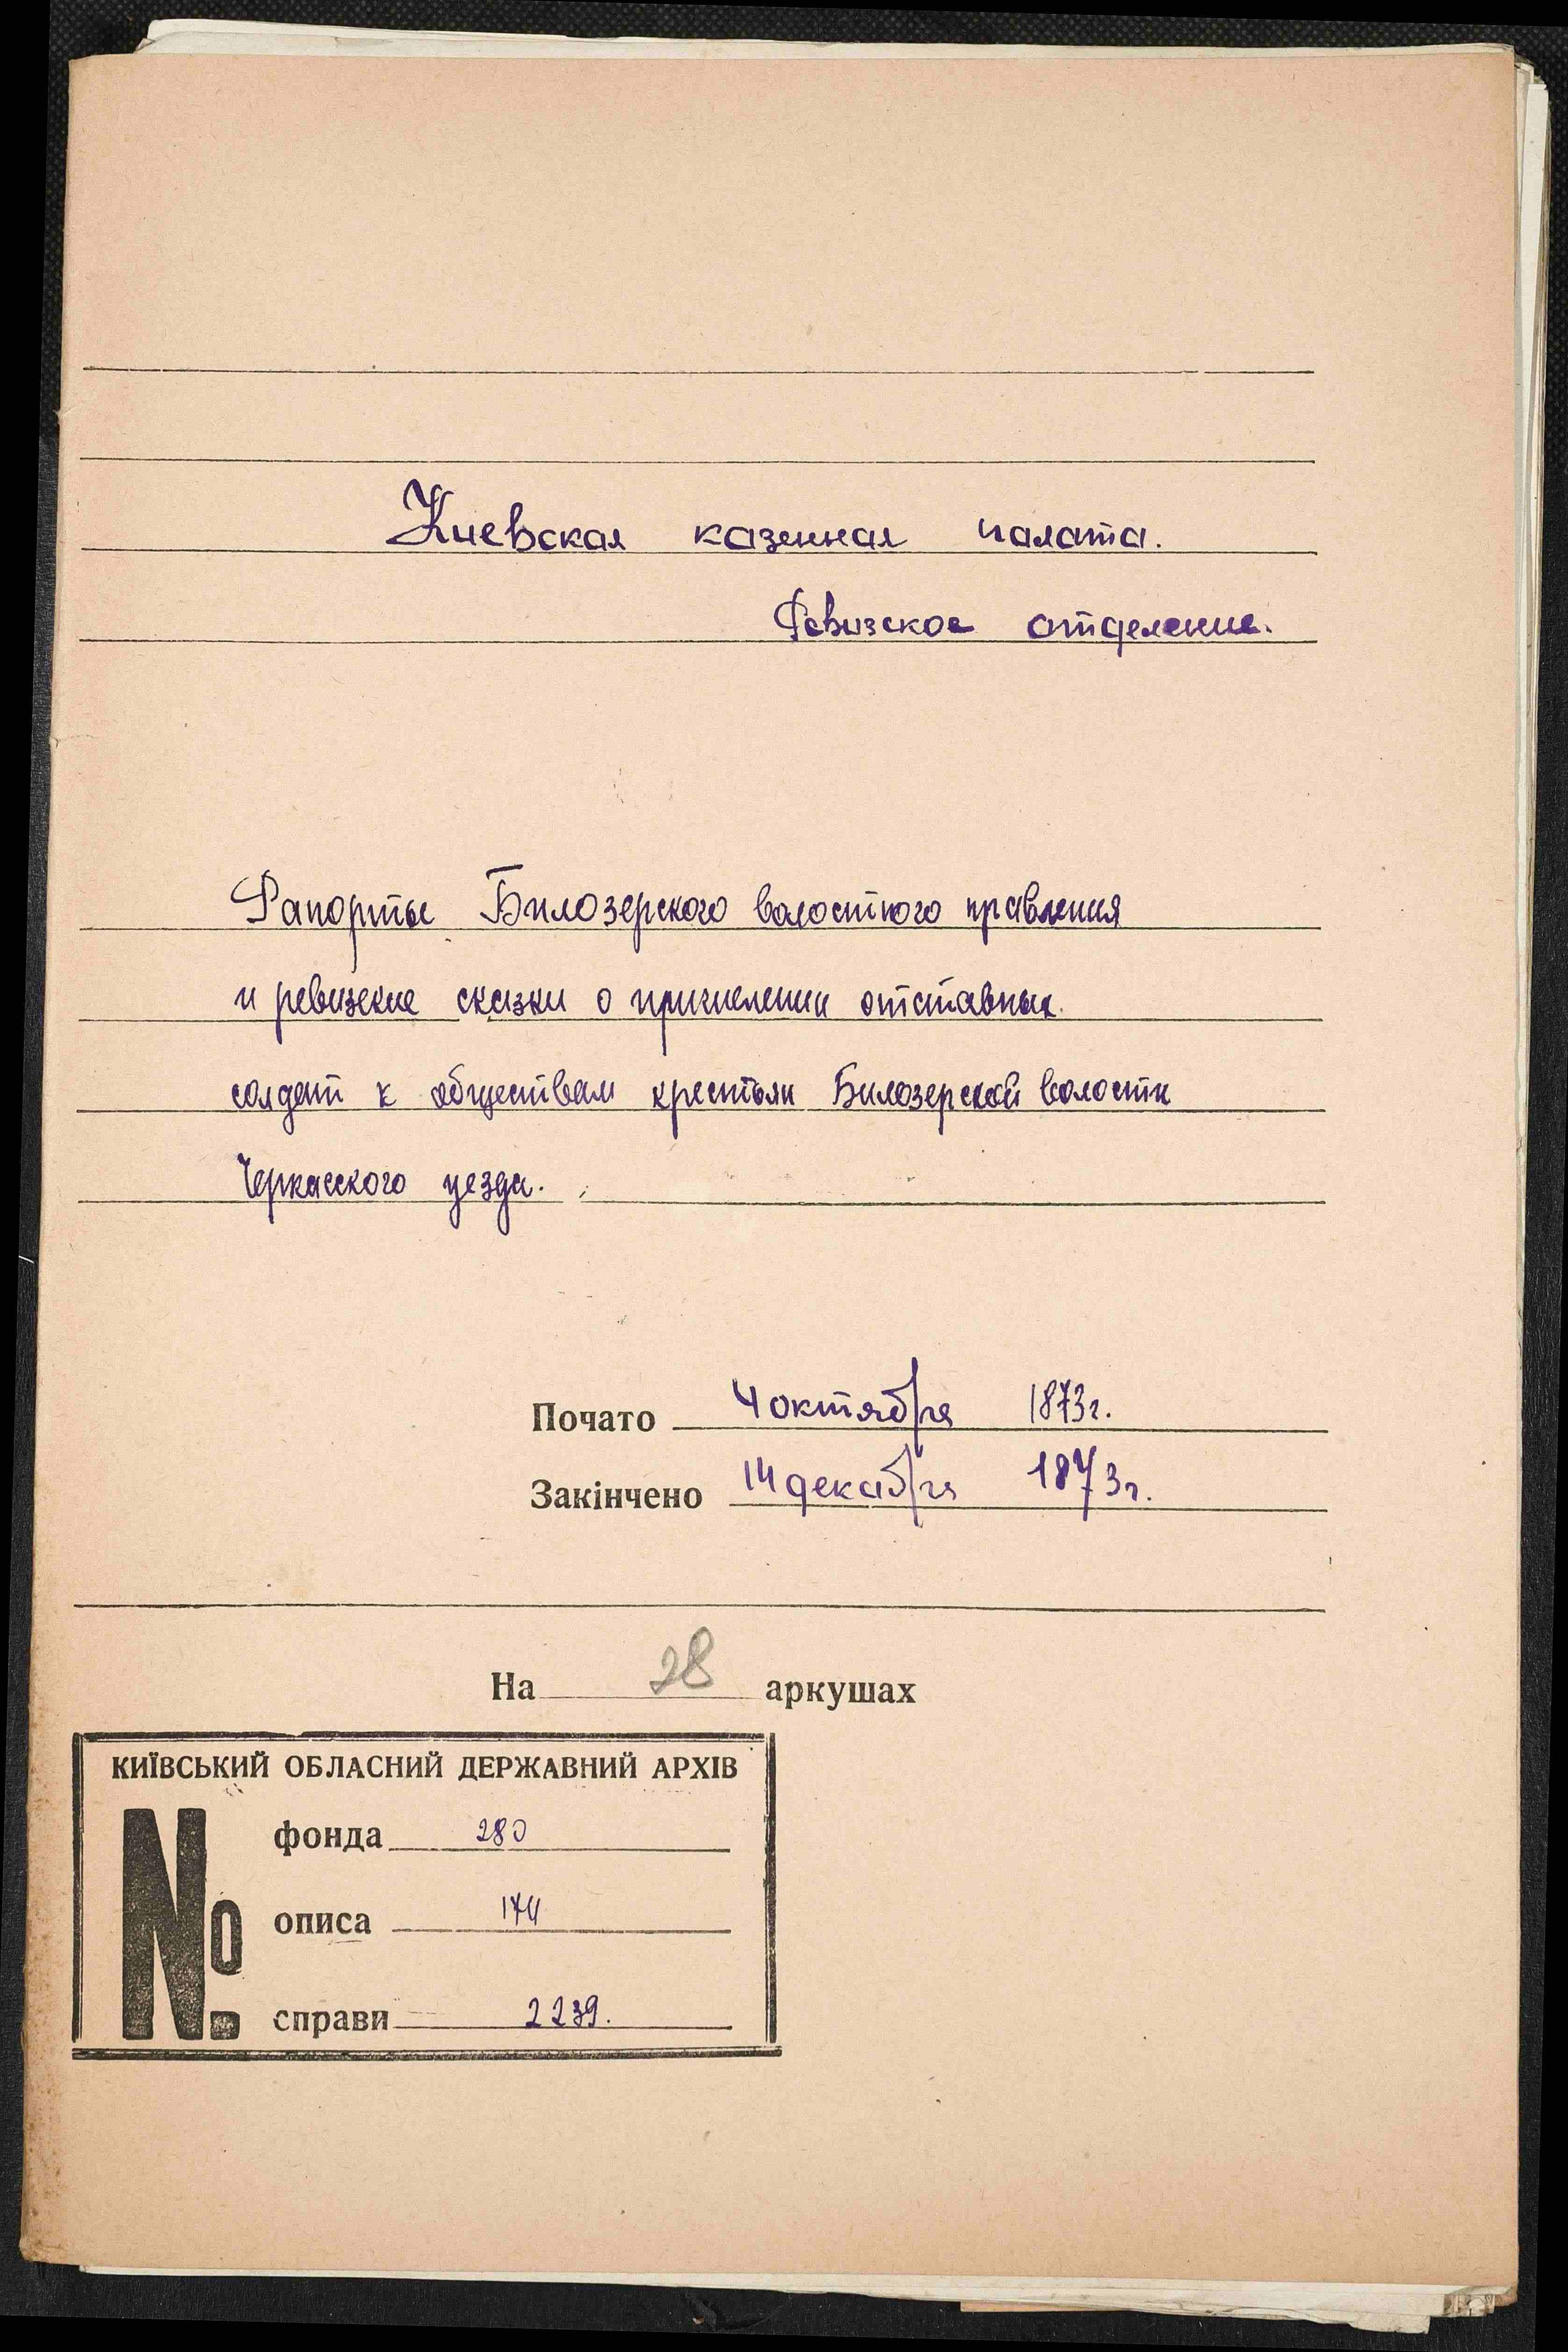 Киевская казенная палата.
Ревизское отделение.
Рапорты Билозерского волостного правления
и ревизские сказки о причислении отставных
солдат к обществам крестьян Билозерской волости
Черкасского уезда.
Почато 4 октября 1873 г.
Закінчено 14 декабря 1873 г.
На 28 аркушах
КИЇВСЬКИЙ ОБЛАСНИЙ ДЕРЖАВНИЙ АРХІВ
№
фонда 280
описа 174
справи 2239.